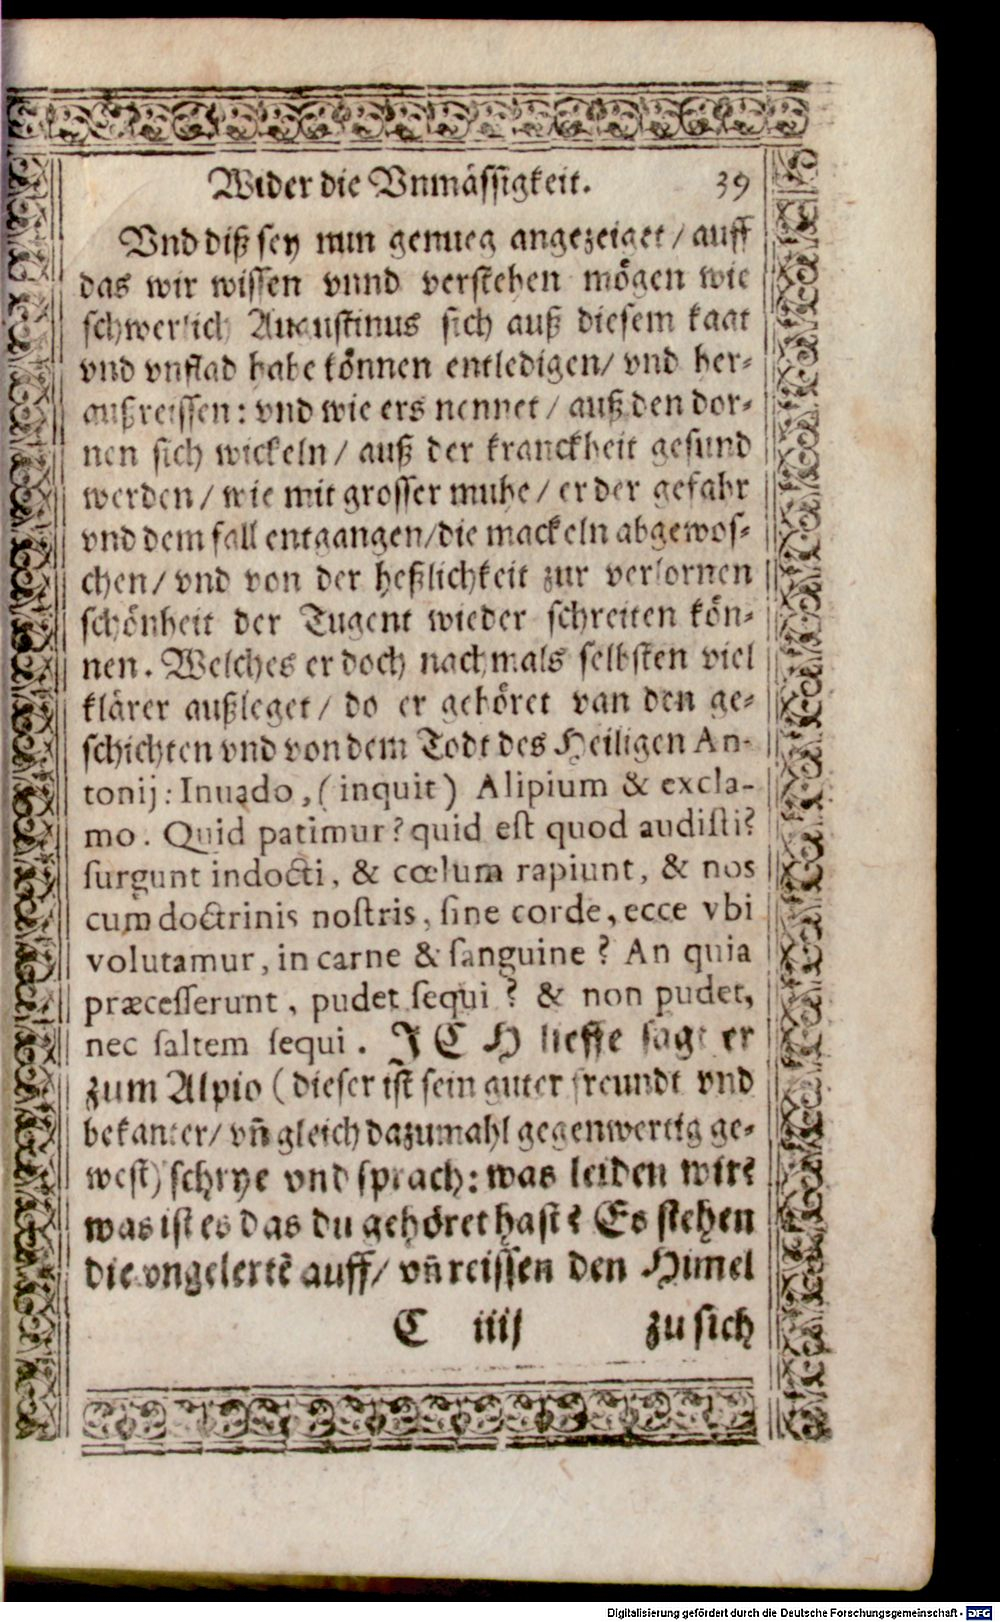 Wider die Vnmässigkeit. 39
Vnd diß sey nun genueg angezeiget / auff
das wir wissen vnnd verstehen mögen wie
schwerlich Augustinus sich auß diesem kaat
vnd vnflad habe können entledigen/ vnd her-
außreissen: vnd wie ers nennet / auß den dor-
nen sich wickeln / auß der kranckheit gesund
werden / wie mit grosser muhe / er der gefahr
vnd dem fall entgangen/die mackeln abgewos-
chen / vnd von der heßlichkeit zur verlornen
schönheit der Tugent wieder schreiten kön-
nen. Welches er doch nachmals selbsten viel
klärer außleget / do er gehöret van den ge-
schichten vnd von dem Todt des Heiligen An-
tonij: Inuado, (inquit) Alipium & excla-
mo. Quid patimur? quid est quod audisti?
surgunt indocti, & cœlum rapiunt, & nos
cum doctrinis nostris, sine corde, ecce vbi
volutamur, in carne & sanguine? An quia
præcesserunt, pudet sequi? & non pudet,
nec saltem sequi. ICH lieffe sagt er
zum Alpio (dieser ist sein guter freundt vnd
bekanter/ vn̄ gleich dazumahl gegenwertig ge-
west) schrye vnd sprach: was leiden wir?
was ist es das du gehöret hast? Es stehen
die vngelertē auff/ vn̄ reissen den Himel
C iiij zu sich
Digitalisierung gefördert durch die Deutsche Forschungsgemeinschaft - DFG